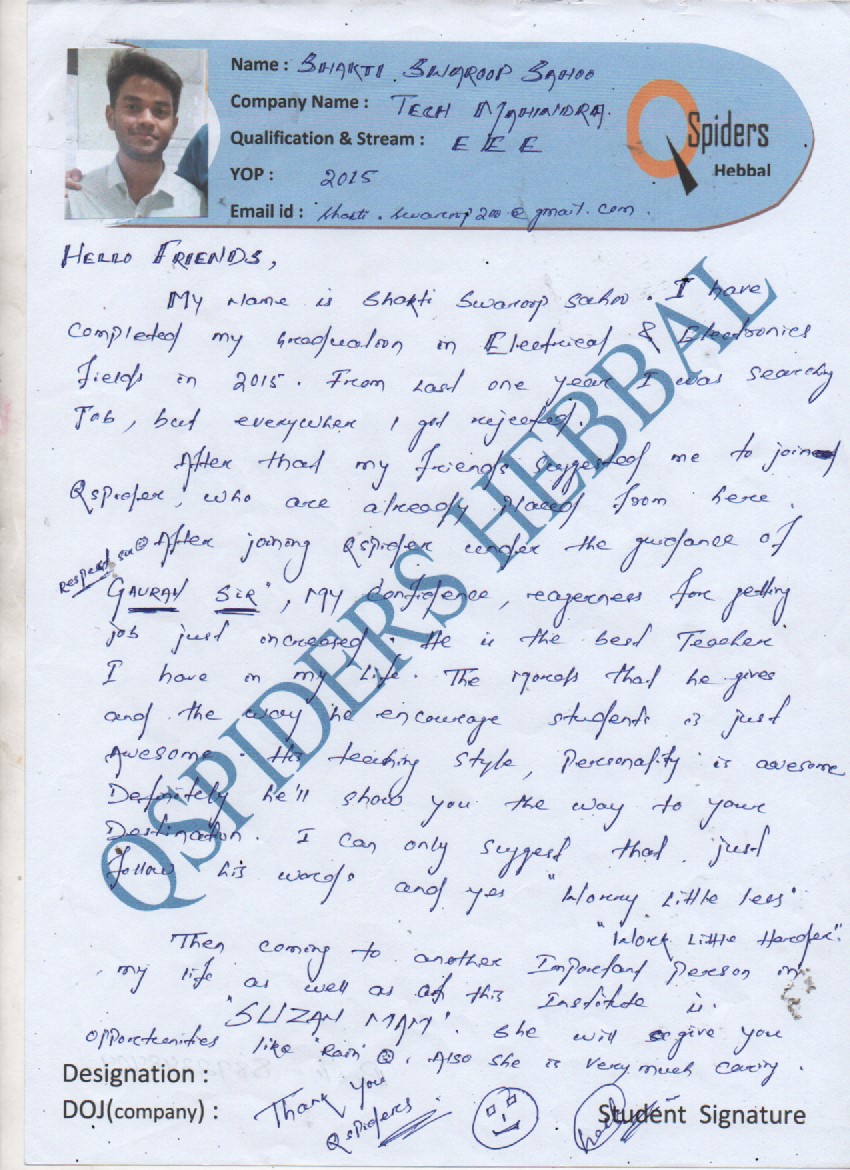 Name : BHAKTI SWAROOP SAHOO
Company Name : TECH MAHINDRA.
Qualification & Stream : E E E
YOP : 2015
Email id : bhakti.swaroop200@gmail.com.
QSpiders
Hebbal
HELLO FRIENDS,
My Name is Bhakti Swaroop Sahoo. I have
completed my Graduation in Electrical & Electronics
fields in 2015. From Last one year I was searching
Job, but everywhere I got rejected.
After that my friends suggested me to joined
Qspider, who are already placed from here.
After joining Qspider under the guidance of
Respect sir
"GAURAV SIR", My Confidence, eagerness for getting
job just increased. He is the best Teacher
I have in my life. The Morals that he gives
and the way he encourage students is just
Awesome. His teaching style, Personality is awesome
Definitely he'll show you the way to your
Destination. I can only suggest that just
follow his words and yes "Worry little less"
"Work Little Harder".
Then coming to another Important Person in
my life as well as of this Institute is.
"SUZAN MAM". She will give you
opportunities like "Rain". Also she is very much caring.
QSPIDERS HEBBAL
Designation :
DOJ(company) :
Thank You
Qspiders.
Student Signature